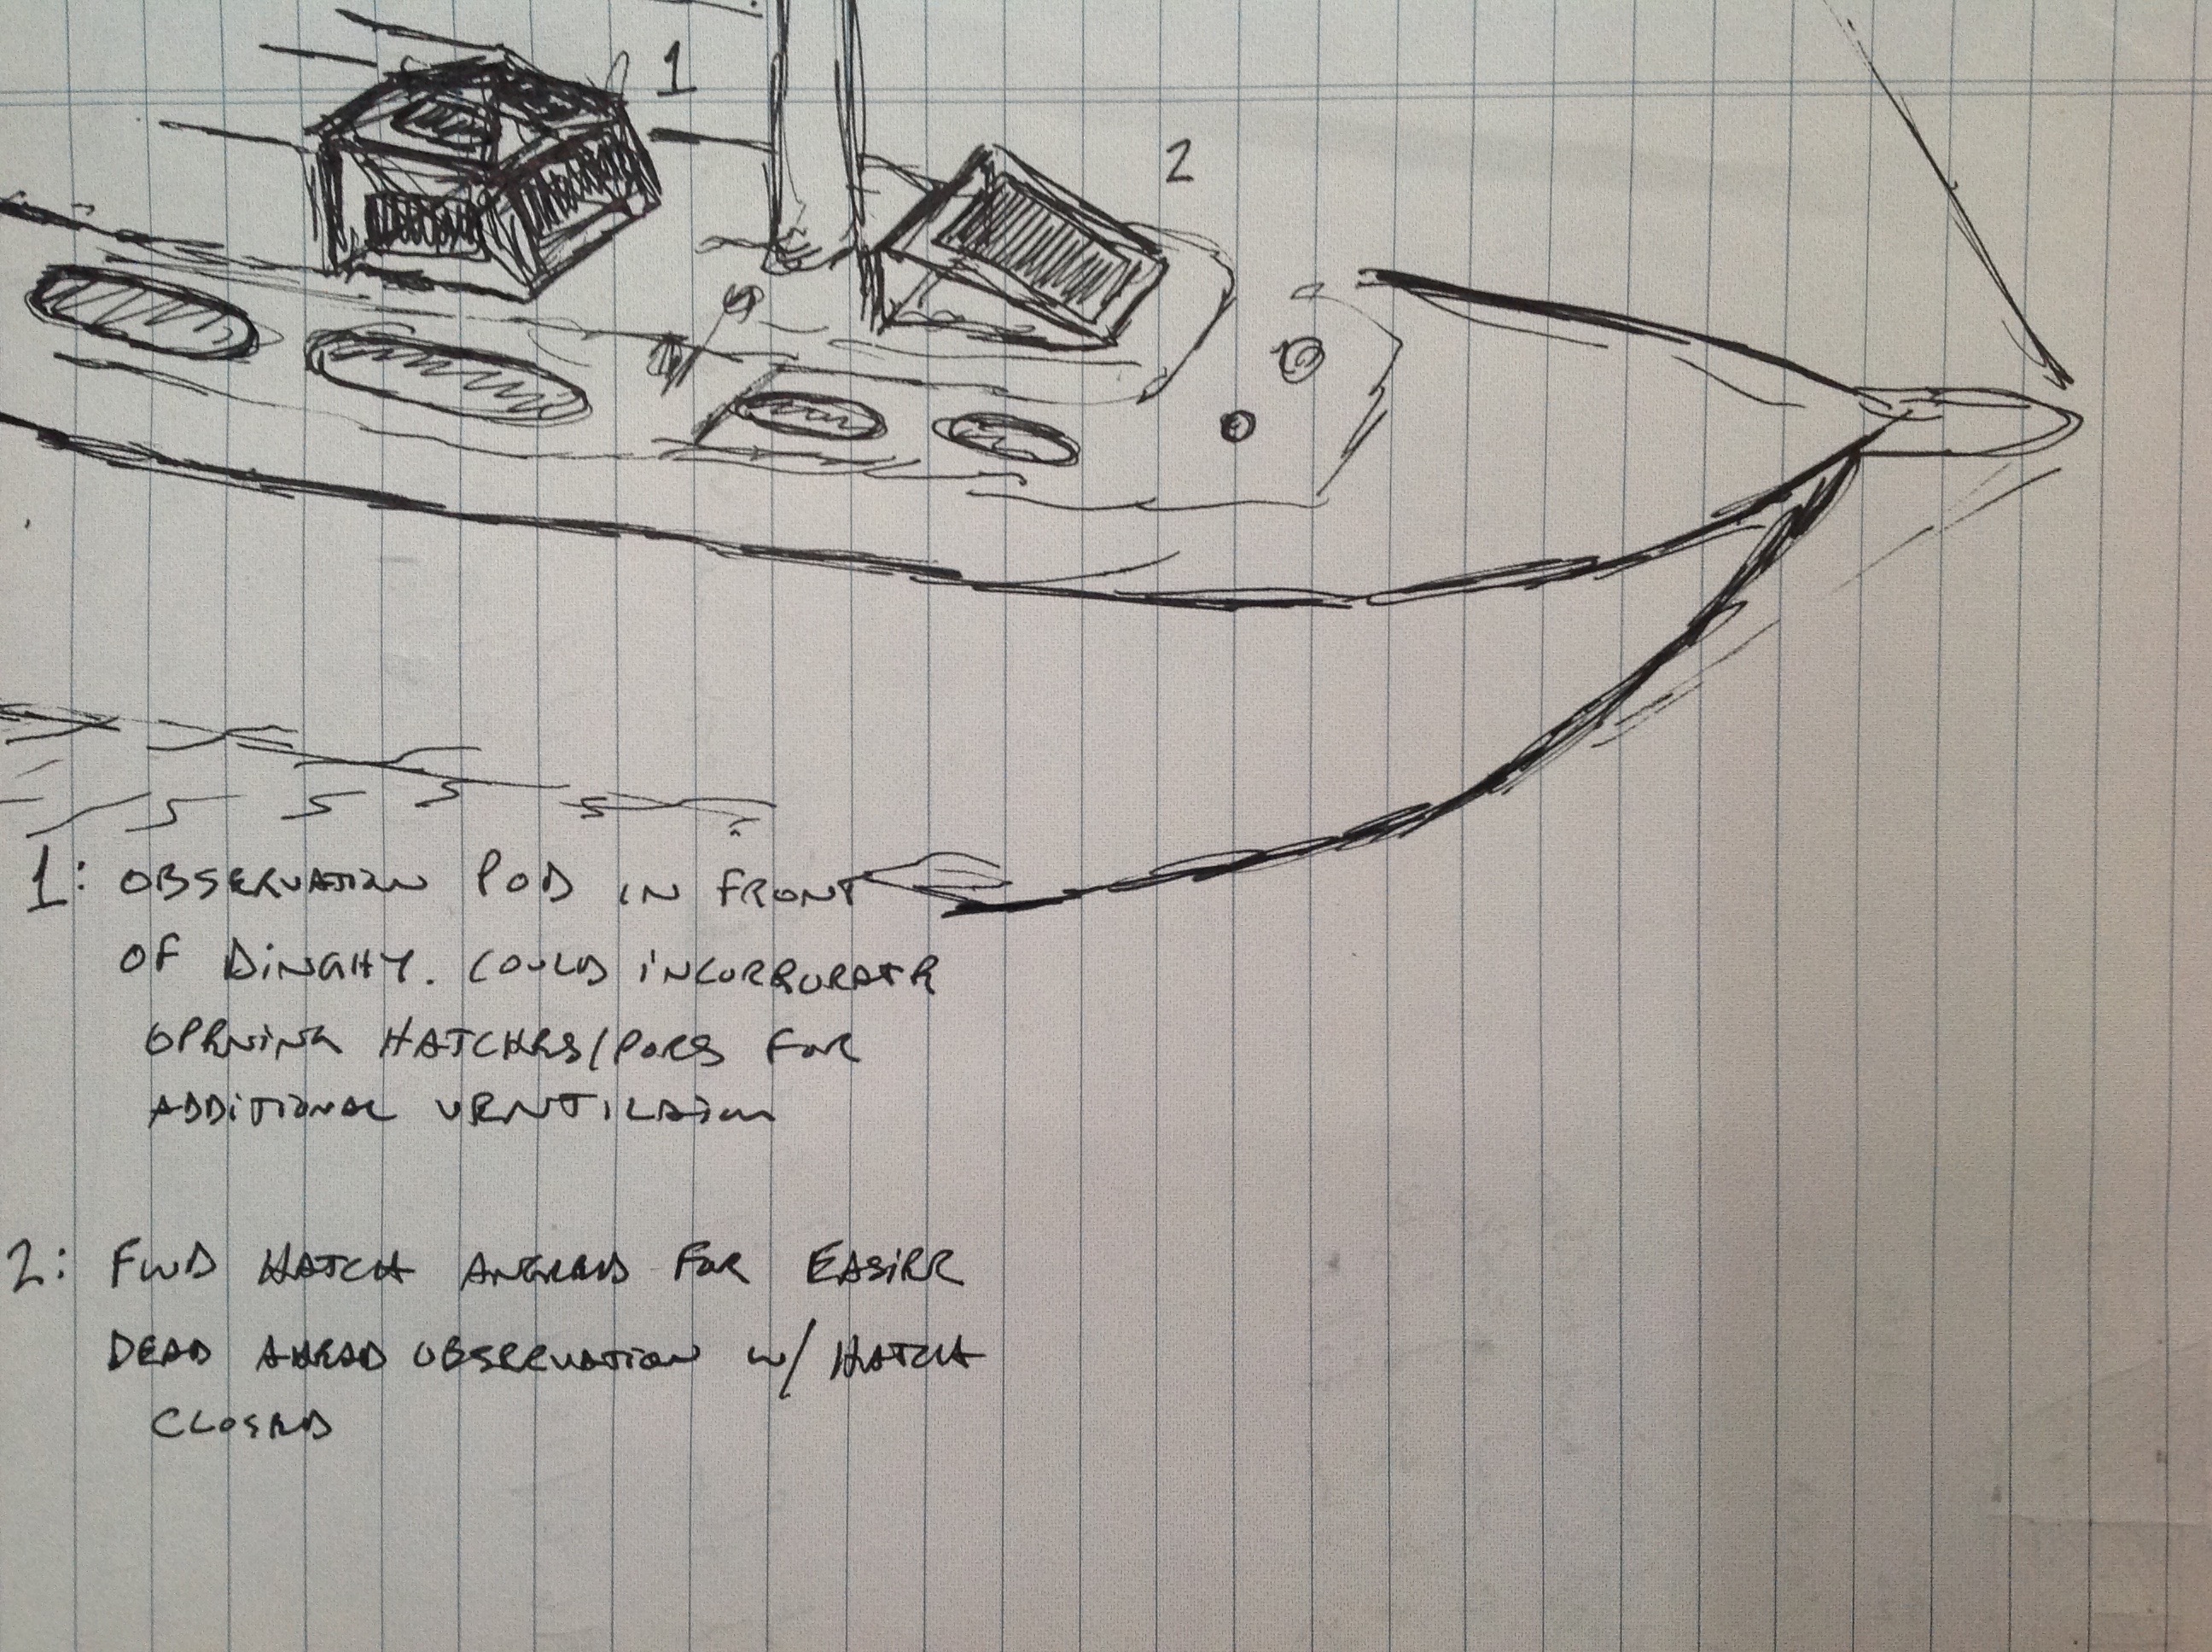 1
2
1: OBSERVATION POD IN FRONT
OF DINGHY. COULD INCORPORATE
OPENING HATCHES/PORS FOR
ADDITIONAL VENTILAION
2: FWD HATCH ANGLED FOR EASIER
DEAD AHEAD OBSERVATION W/ HATCH
CLOSED